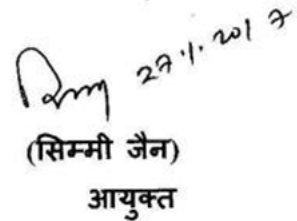 27.1.2017
(सिम्मी जैन)
आयुक्त